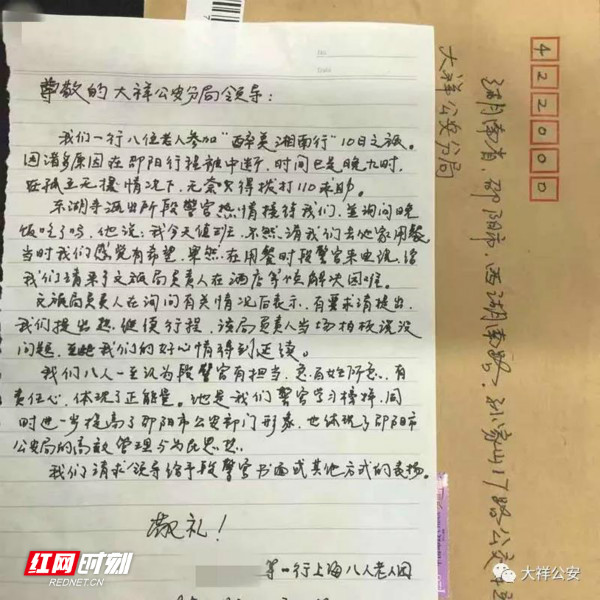 No.
Date
尊敬的大祥公安分局领导：
我们一行八位老人参加“醉美湘南行”10日之旅。
因诸多原因在邵阳行程被中断，时间已是晚九时，
在孤立无援情况下，无奈只得拨打110求助。
东湖寺派出所段警官热情接待我们，并询问晚
饭吃了吗，他说，我今天值班，不然请我们去他家用餐
当时我们感觉有希望，果然，在用餐时段警官来电说，给
我们请来了文旅局负责人在酒店等候解决困难。
文旅局负责人在询问有关情况后表示，有要求请提出，
我们提出想继续行程，该局负责人当场拍板说没
问题，至此我们的好心情得到延续。
我们八人一至认为段警官有担当，急百姓所急，有
责任心，体现了正能量。他是我们警官学习榜样，同
时进一步提高了邵阳市公安部门形象，也体现了邵阳市
公安局的高效管理与为民思想。
我们请求领导给予段警官书面或其他方式的表扬。
敬礼！
等一行上海八人老人团
422000
湖南省，邵阳市，西湖南路，孙家山17路公交
大祥公安分局
红网时刻
REDNET.CN
大祥公安